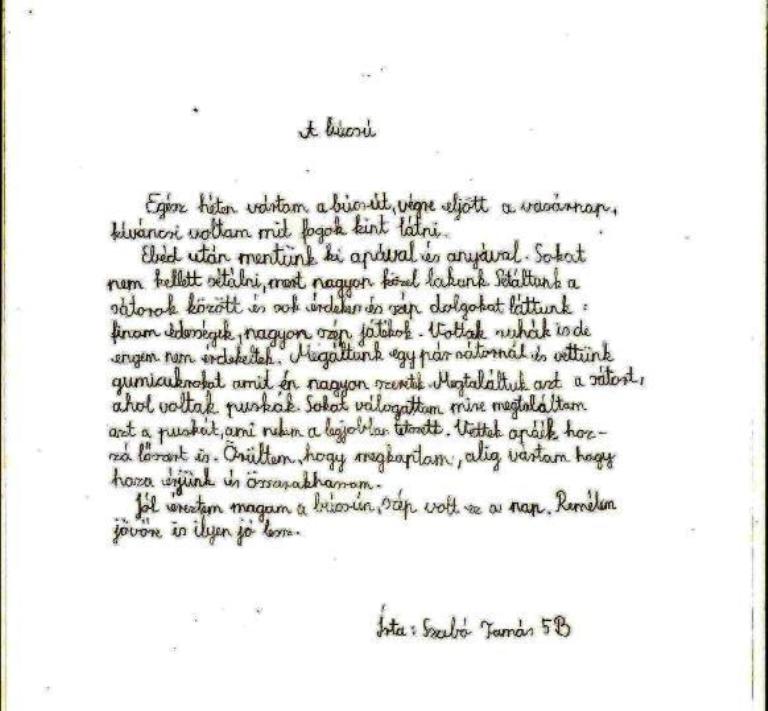 A búcsú
Egész héten vártam a búcsút, végre eljött a vasárnap,
kíváncsi voltam mit fogok kint látni.
Ebéd után mentünk ki apával és anyával. Sokat
nem kellett sétálni, mert nagyon közel lakunk. Sétáltunk a
sátorok között és sok érdekes és szép dolgokat láttunk :
finom édességek, nagyon szép játékok. Voltak ruhák is de
engem nem érdekeltek. Megálltunk egy pár sátornál és vettünk
gumicukrokat amit én nagyon szeretek. Megtaláltuk azt a sátort,
ahol voltak puskák. Sokat válogattam mire megtaláltam
azt a puskát, ami nekem a legjobban tetszett. Vettek apáék hoz-
zá lőszert is. Örültem, hogy megkaptam, alig vártam hogy
haza érjünk és összerakhassam.
Jól éreztem magam a búcsún, szép volt ez a nap. Remélem
jövőre is ilyen jó lesz.
Írta : Szabó Tamás 5B